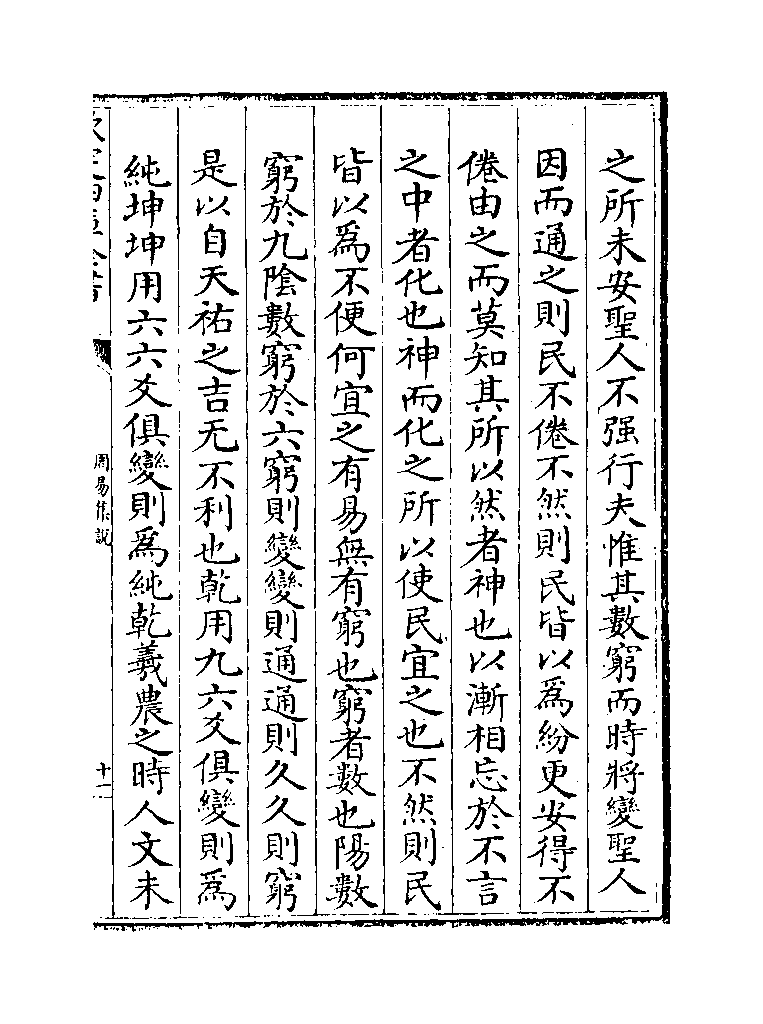 之所未安聖人不强行夫惟其數窮而時將變聖人
因而通之則民不倦不然則民皆以爲紛更安得不
倦由之而莫知其所以然者神也以漸相忘於不言
之中者化也神而化之所以使民宜之也不然則民
皆以爲不便何宜之有易無有窮也窮者數也陽數
窮於九陰數窮於六窮則變變則通通則久久則窮
是以自天祐之吉无不利也乾用九六爻俱變則爲
純坤坤用六六爻俱變則爲純乾羲農之時人文未
周易集說
十二